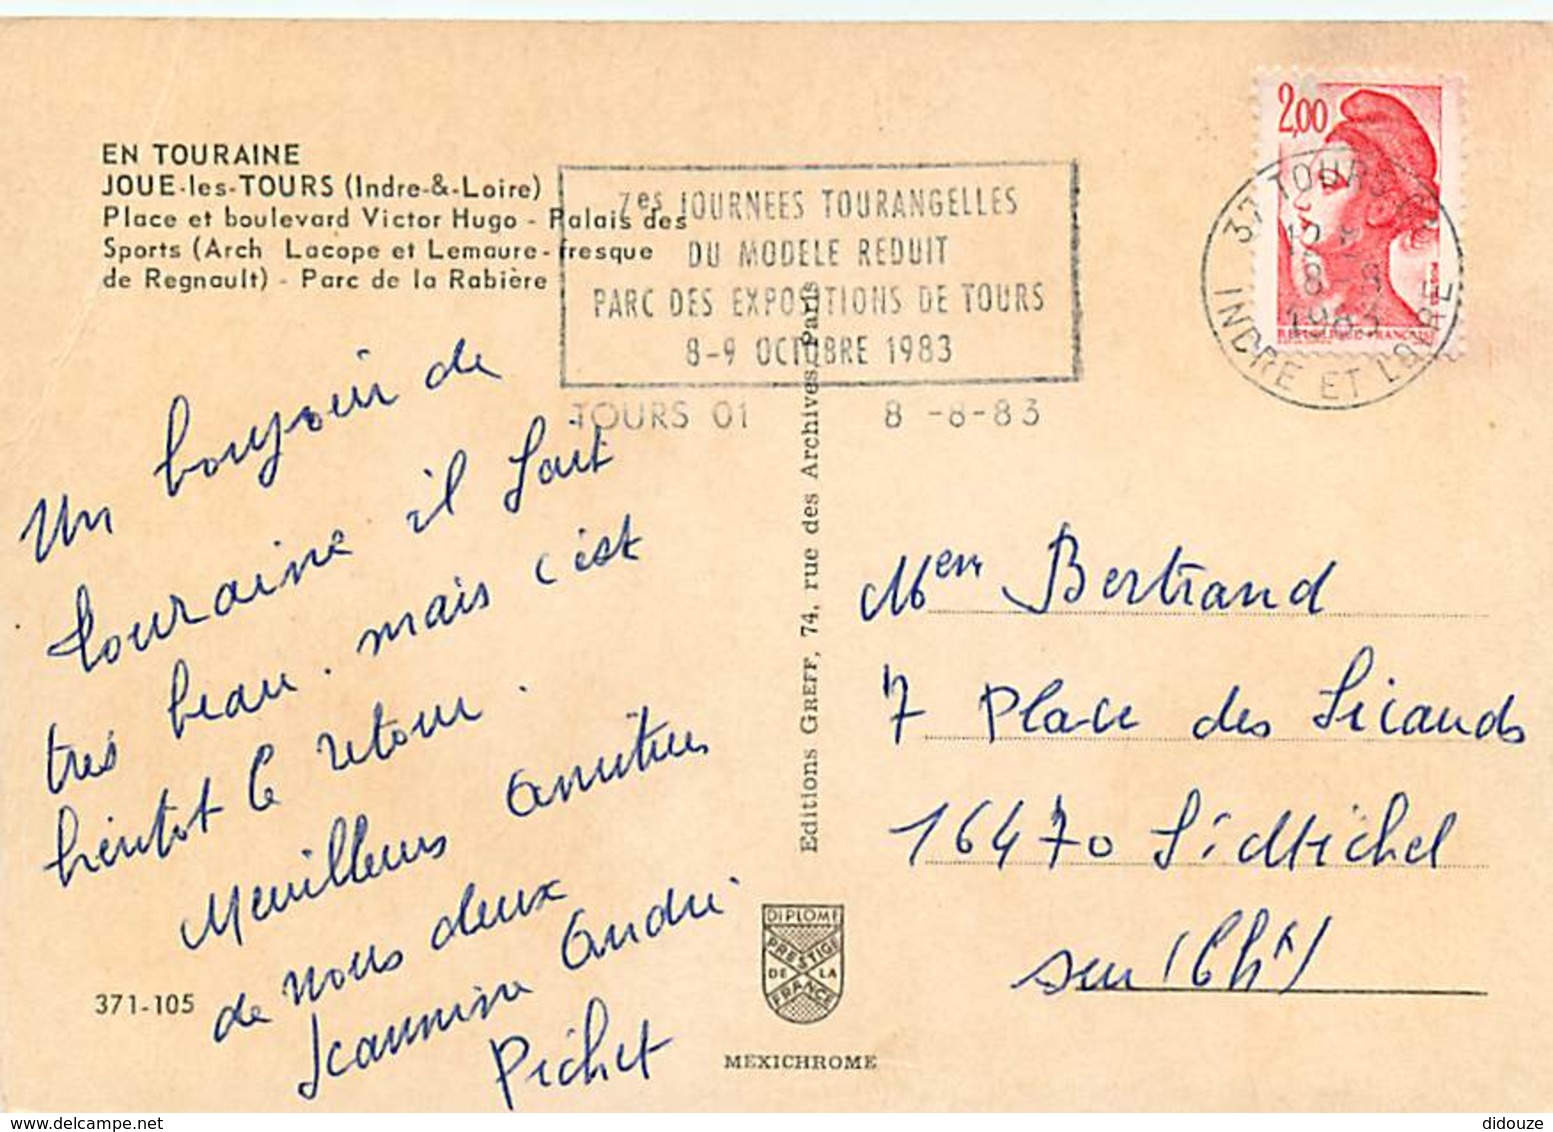 EN TOURAINE
JOUE-les-TOURS (Indre-&-Loire)
Place et boulevard Victor Hugo - Palais des
Sports (Arch Lacope et Lemaure-fresque
de Regnault) - Parc de la Rabière
7es JOURNEES TOURANGELLES
DU MODELE REDUIT
PARC DES EXPOSITIONS DE TOURS
8-9 OCTOBRE 1983
TOURS 01 8 -8-83
2,00
37 TOURS
8 8
1983
INDRE ET LOIRE
Un bonjour de
touraine il fait
très beau. mais c'est
bientot le retour.
Meuilleurs amitiés
de nous deux
Jeannine André
Pichet
371-105
Editions GREFF, 74, rue des Archives, Paris
DIPLOME
PRESTIGE
DE LA
FRANCE
MEXICHROME
Bertrand
7 Place des
16470
sur
didouze